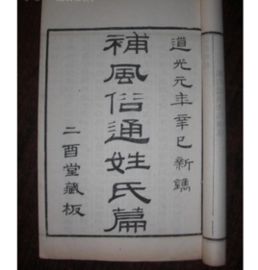 道光元年辛巳新鐫
補風俗通姓氏篇
二酉堂藏板